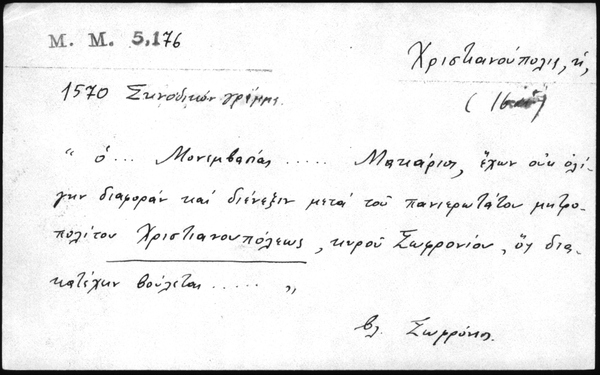 M. M. 5,176
Χριστιανούπολις, ἡ,
1570 Συνοδικόν γράμμα.
(16
" ὁ ... Μονεμβασίας ..... Μακάριος, ἔχων οὐκ ὀλί-
γην διαφοράν καί διένεξιν μετά τοῦ πανιερωτάτου μητρο-
πολίτου Χριστιανουπόλεως, κυροῦ Σωφρονίου, ὅς δια-
κατέχειν βούλεται ..... "
βλ. Σωφρόνιος.